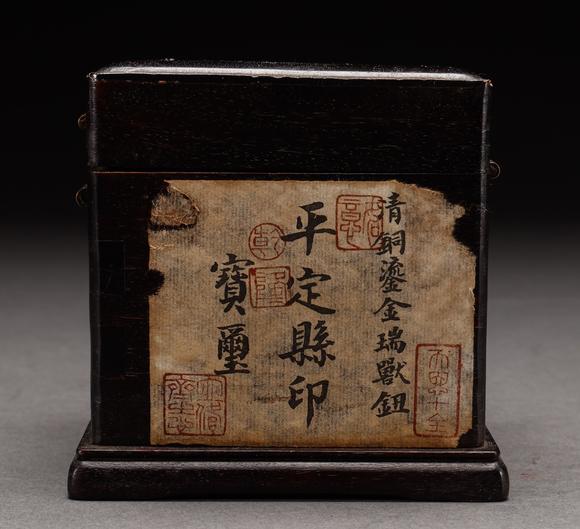 青銅鎏金瑞獸鈕
平定縣印
寶璽
乾
隆